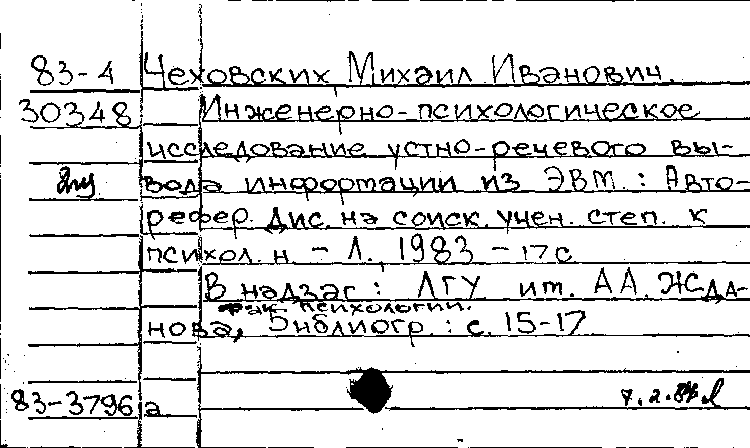 83-4 Чеховских, Михаил Иванович.
30348 Инженерно-психологическое
исследование устно-речевого вы-
вода информации из ЭВМ: Авто-
рефер. Дис. на соиск. учен. степ. к
психол. н. - Л., 1983 - 17 с
В надзаг: ЛГУ им. А.А. Жда-
фак. психологии.
нова, Библиогр.: с. 15-17
83-3796 а
7.2.84